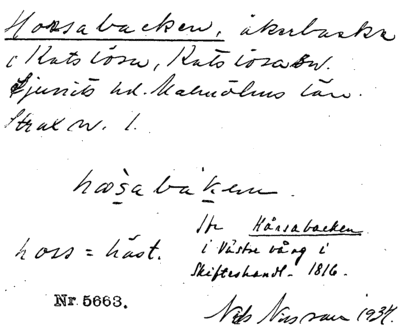 Horsabacken, åkerbacke
i Katslösa, Katslösa sn.
Ljunits hd. Malmöhus län.
Strax n. 1.
hoṣabaken.
Se Hårsabacken
i Västre vång i
Skifteshandl. 1816.
hors = häst.
Nr. 5663.
Nils Nilsson 1937.